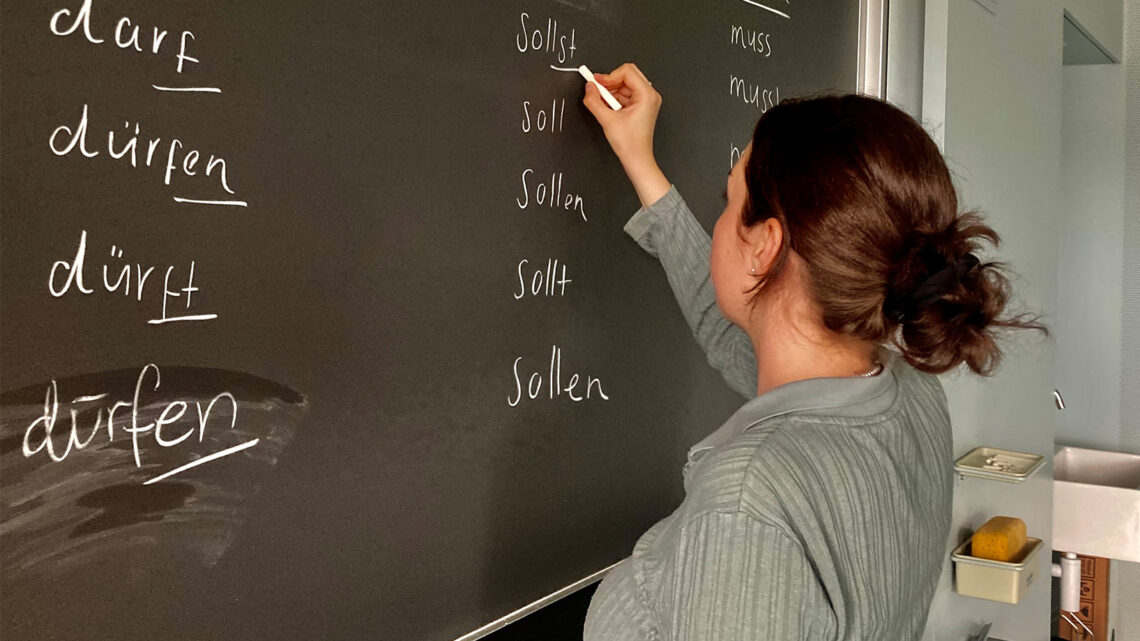 darf
dürfen
dürft
dürfen
sollst
soll
sollen
sollt
sollen
muss